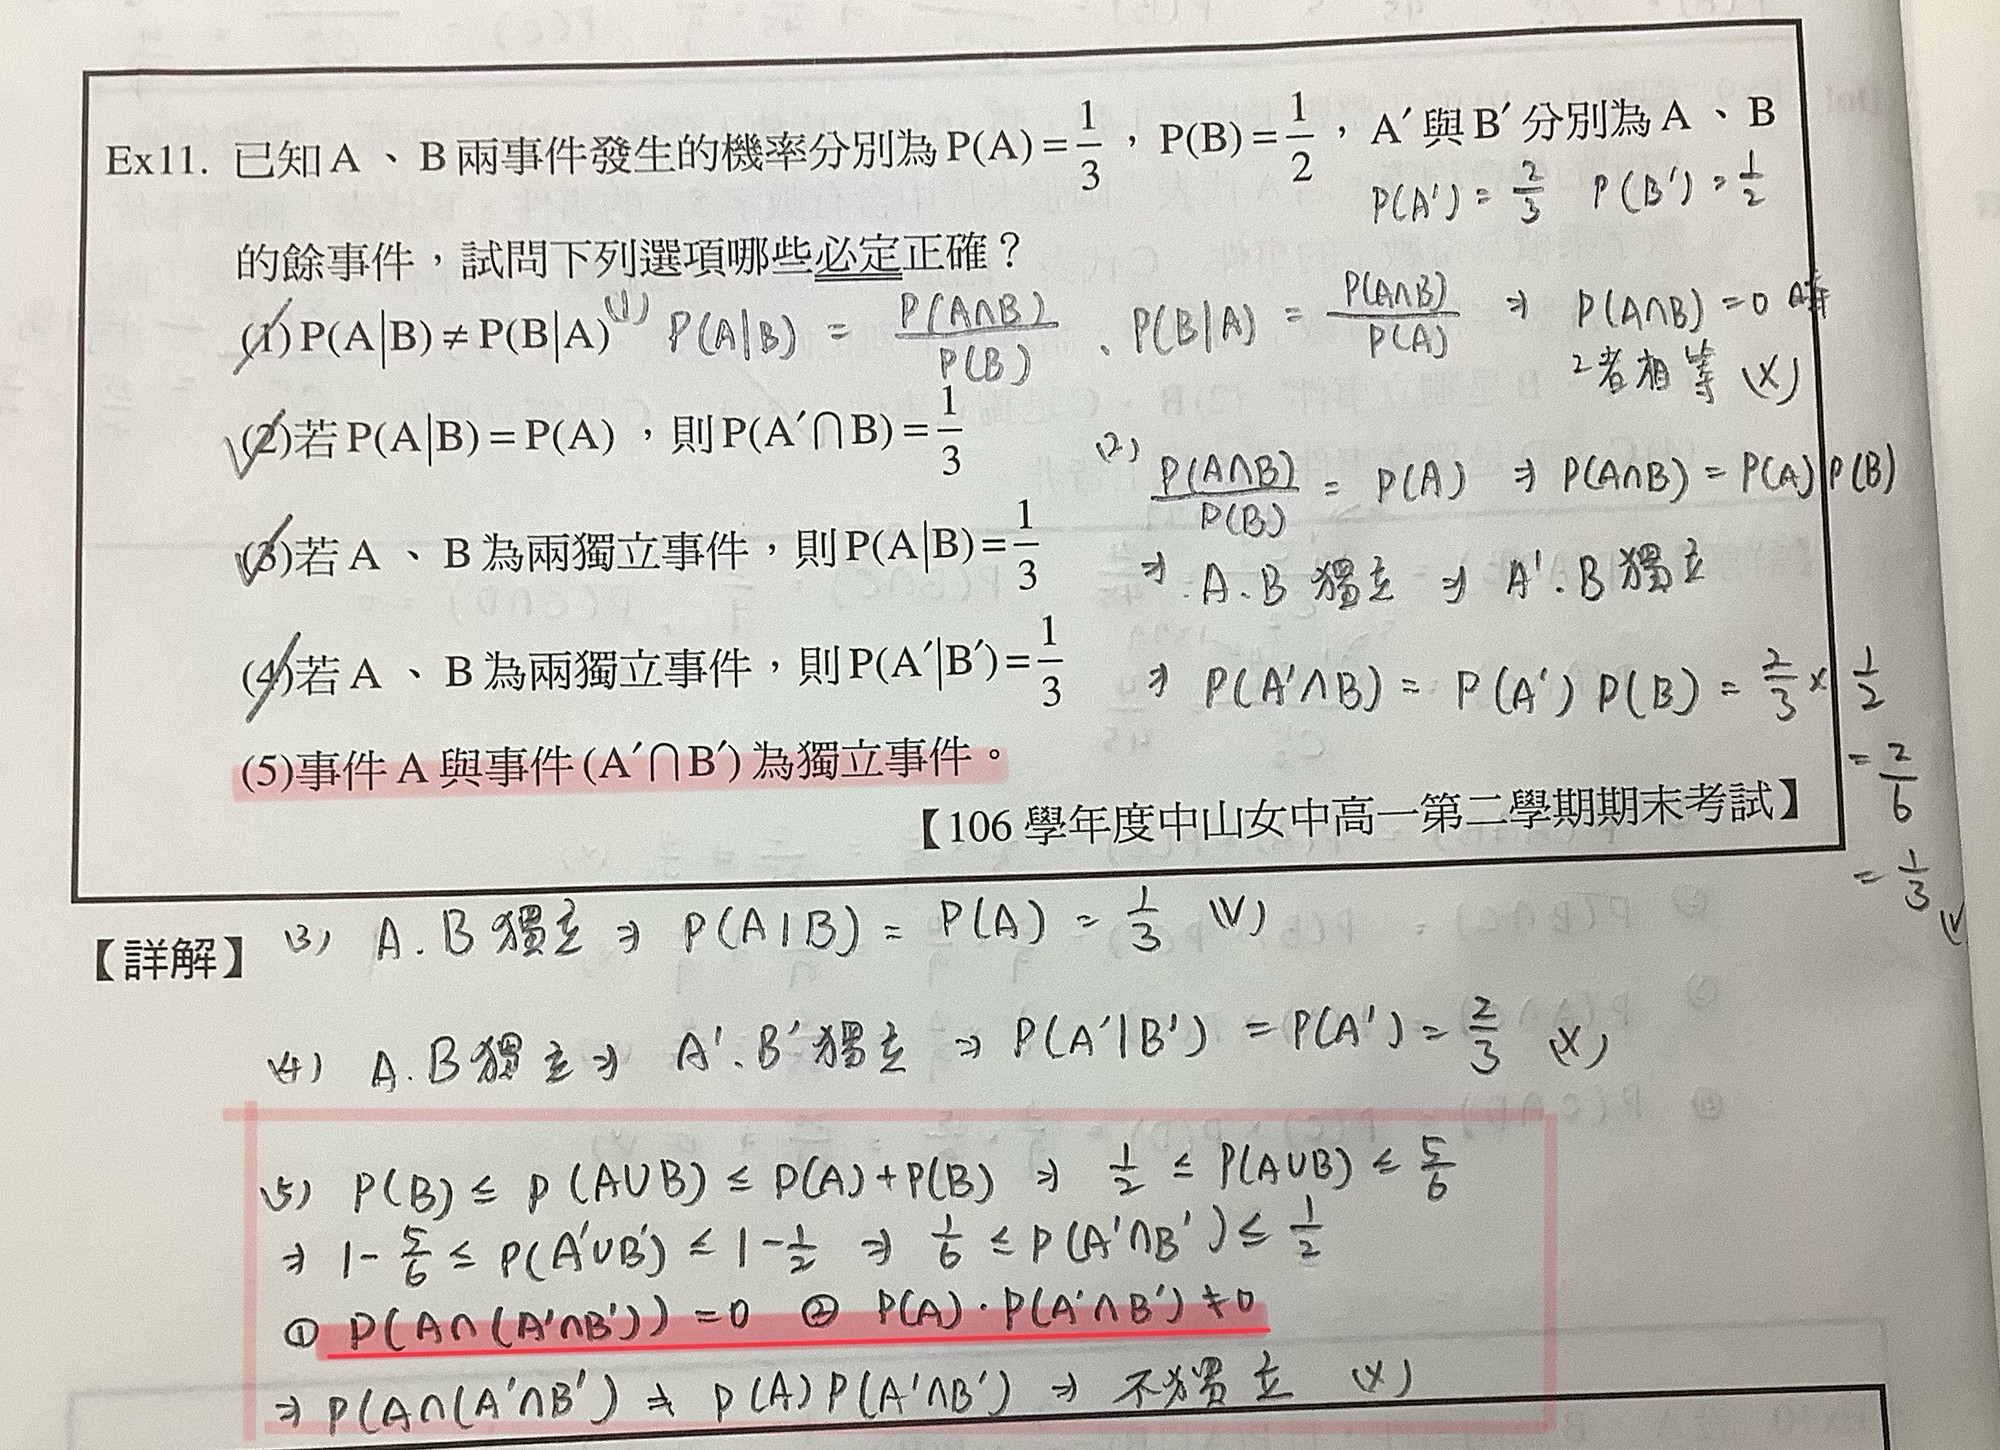 Ex11. 已知A、B兩事件發生的機率分別為P(A)=1/3，P(B)=1/2，A′與B′分別為A、B
P(A')=2/3 P(B')=1/2
的餘事件，試問下列選項哪些必定正確？
(1)P(A|B)≠P(B|A)
(1) P(A|B) = P(A∩B)/P(B)、P(B|A) = P(A∩B)/P(A) ⇒ P(A∩B)=0 時
2者相等 (X)
(2)若P(A|B)=P(A)，則P(A′∩B)=1/3
(2) P(A∩B)/P(B) = P(A) ⇒ P(A∩B)=P(A)P(B)
(3)若A、B為兩獨立事件，則P(A|B)=1/3
⇒ A.B獨立 ⇒ A'.B獨立
(4)若A、B為兩獨立事件，則P(A′|B′)=1/3
⇒ P(A'∩B) = P(A')P(B) = 2/3 × 1/2
= 2/6
= 1/3 (V)
(5)事件A與事件(A′∩B′)為獨立事件。
【106學年度中山女中高一第二學期期末考試】
【詳解】
(3) A.B獨立 ⇒ P(A|B) = P(A) = 1/3 (V)
(4) A.B獨立 ⇒ A'.B'獨立 ⇒ P(A'|B') = P(A') = 2/3 (X)
(5) P(B) ≤ P(A∪B) ≤ P(A)+P(B) ⇒ 1/2 ≤ P(A∪B) ≤ 5/6
⇒ 1-5/6 ≤ P(A'∪B') ≤ 1-1/2 ⇒ 1/6 ≤ P(A'∩B') ≤ 1/2
① P(A∩(A'∩B')) = 0 ② P(A)·P(A'∩B') ≠ 0
⇒ P(A∩(A'∩B') ≠ P(A)P(A'∩B') ⇒ 不獨立 (X)